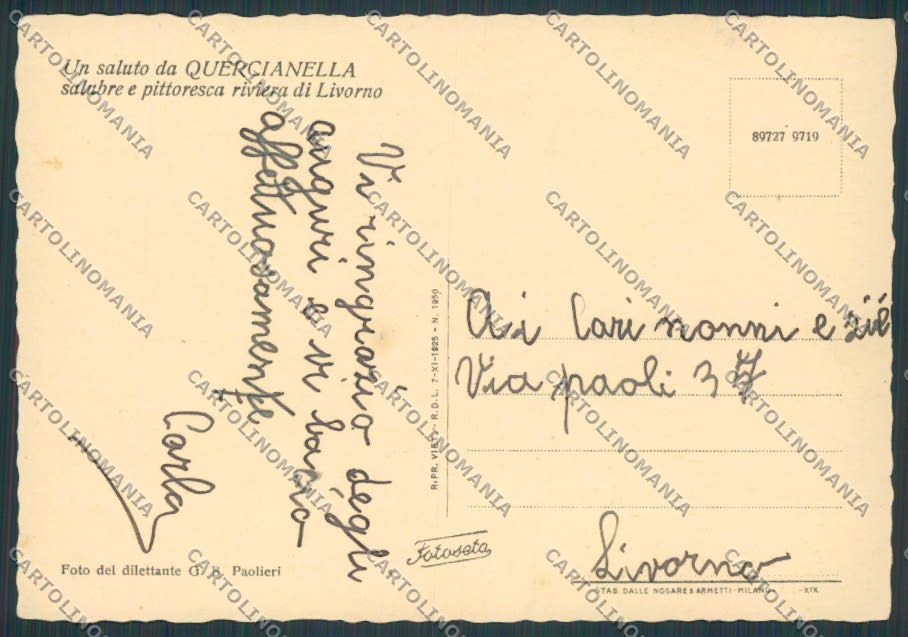 Un saluto da QUERCIANELLA
salubre e pittoresca riviera di Livorno
Vi ringrazio degli
auguri e vi bacio
affettuosamente
Carla
Foto del dilettante G. B. Paolieri
RIPR. VIET. - R.D.L. 7-XI-1925 - N. 1950
Fotoseta
89727 9719
Ai Cari nonni e zie
Via paoli 37
Livorno
STAB. DALLE NOGARE & ARMETTI - MILANO - XIX
CARTOLINOMANIA